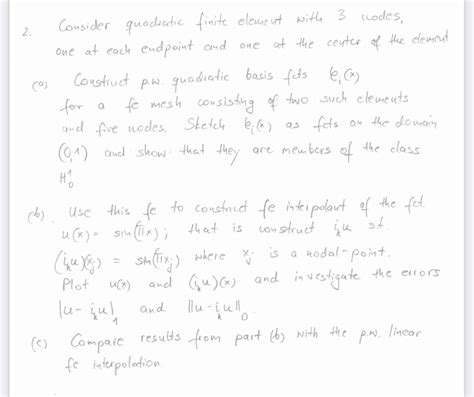 2. Consider quadratic finite element with 3 nodes,
one at each endpoint and one at the center of the element
(a) Construct p.w. quadratic basis fcts φᵢ(x)
for a fe mesh consisting of two such elements
and five nodes. Sketch φᵢ(x) as fcts on the domain
(0,1) and show that they are members of the class
H¹₀
(b) Use this fe to construct fe interpolant of the fct.
u(x) = sin(πx); that is construct iₕu s.t.
(iₕu)(xⱼ) = sin(πxⱼ) where xⱼ is a nodal-point.
Plot u(x) and (iₕu)(x) and investigate the errors
|u - iₕu|₁ and ||u - iₕu||₀
(c) Compare results from part (b) with the p.w. linear
fe interpolation.